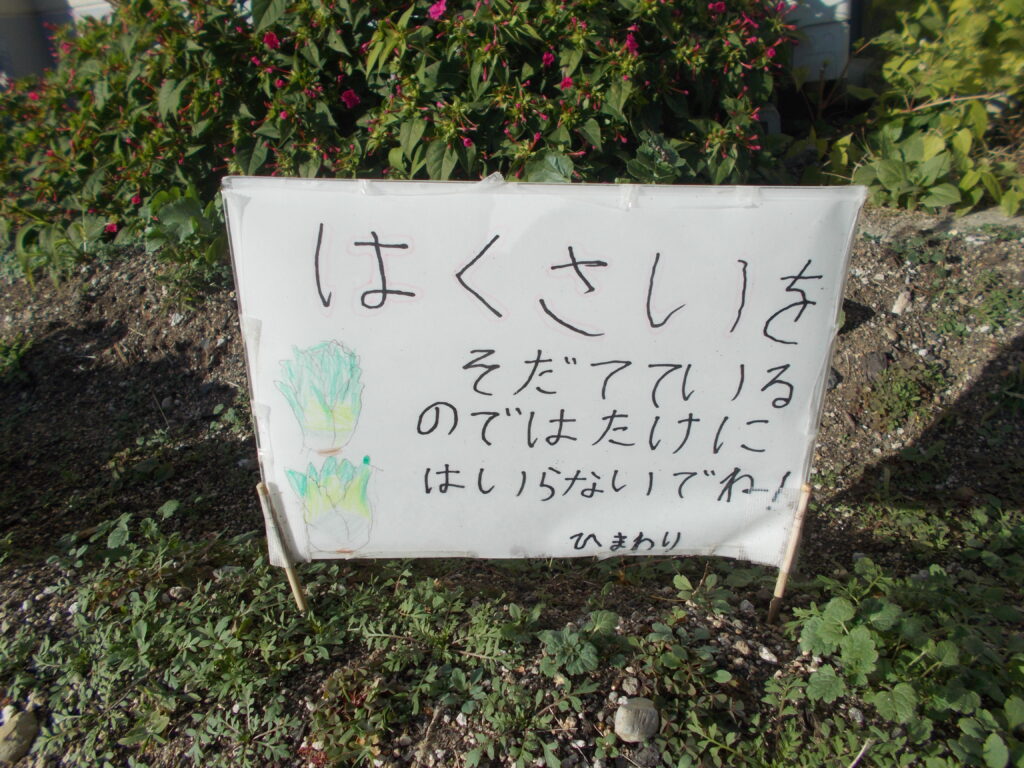 はくさいを
そだてている
のではたけに
はいらないでね!
ひまわり